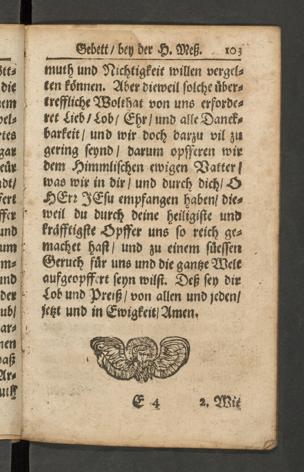 Gebett / bey der H. Meß. 103
muth und Nichtigkeit willen vergel-
ten können. Aber dieweil solche über-
treffliche Wolthat von uns erforde-
ret Lieb / Lob / Ehr / und alle Danck-
barkeit / und wir doch darzu vil zu
gering seynd / darum opfferen wir
dem Himmlischen ewigen Vatter /
was wir in dir / und durch dich / O
HErr JEsu empfangen haben / die-
weil du durch deine heiligiste und
kräfftigste Opffer uns so reich ge-
machet hast / und zu einem süessen
Geruch für uns und die gantze Welt
aufgeopffert seyn wilst. Deß sey dir
Lob und Preiß / von allen und jeden /
jetzt und in Ewigkeit / Amen.
E 4 2. Wir